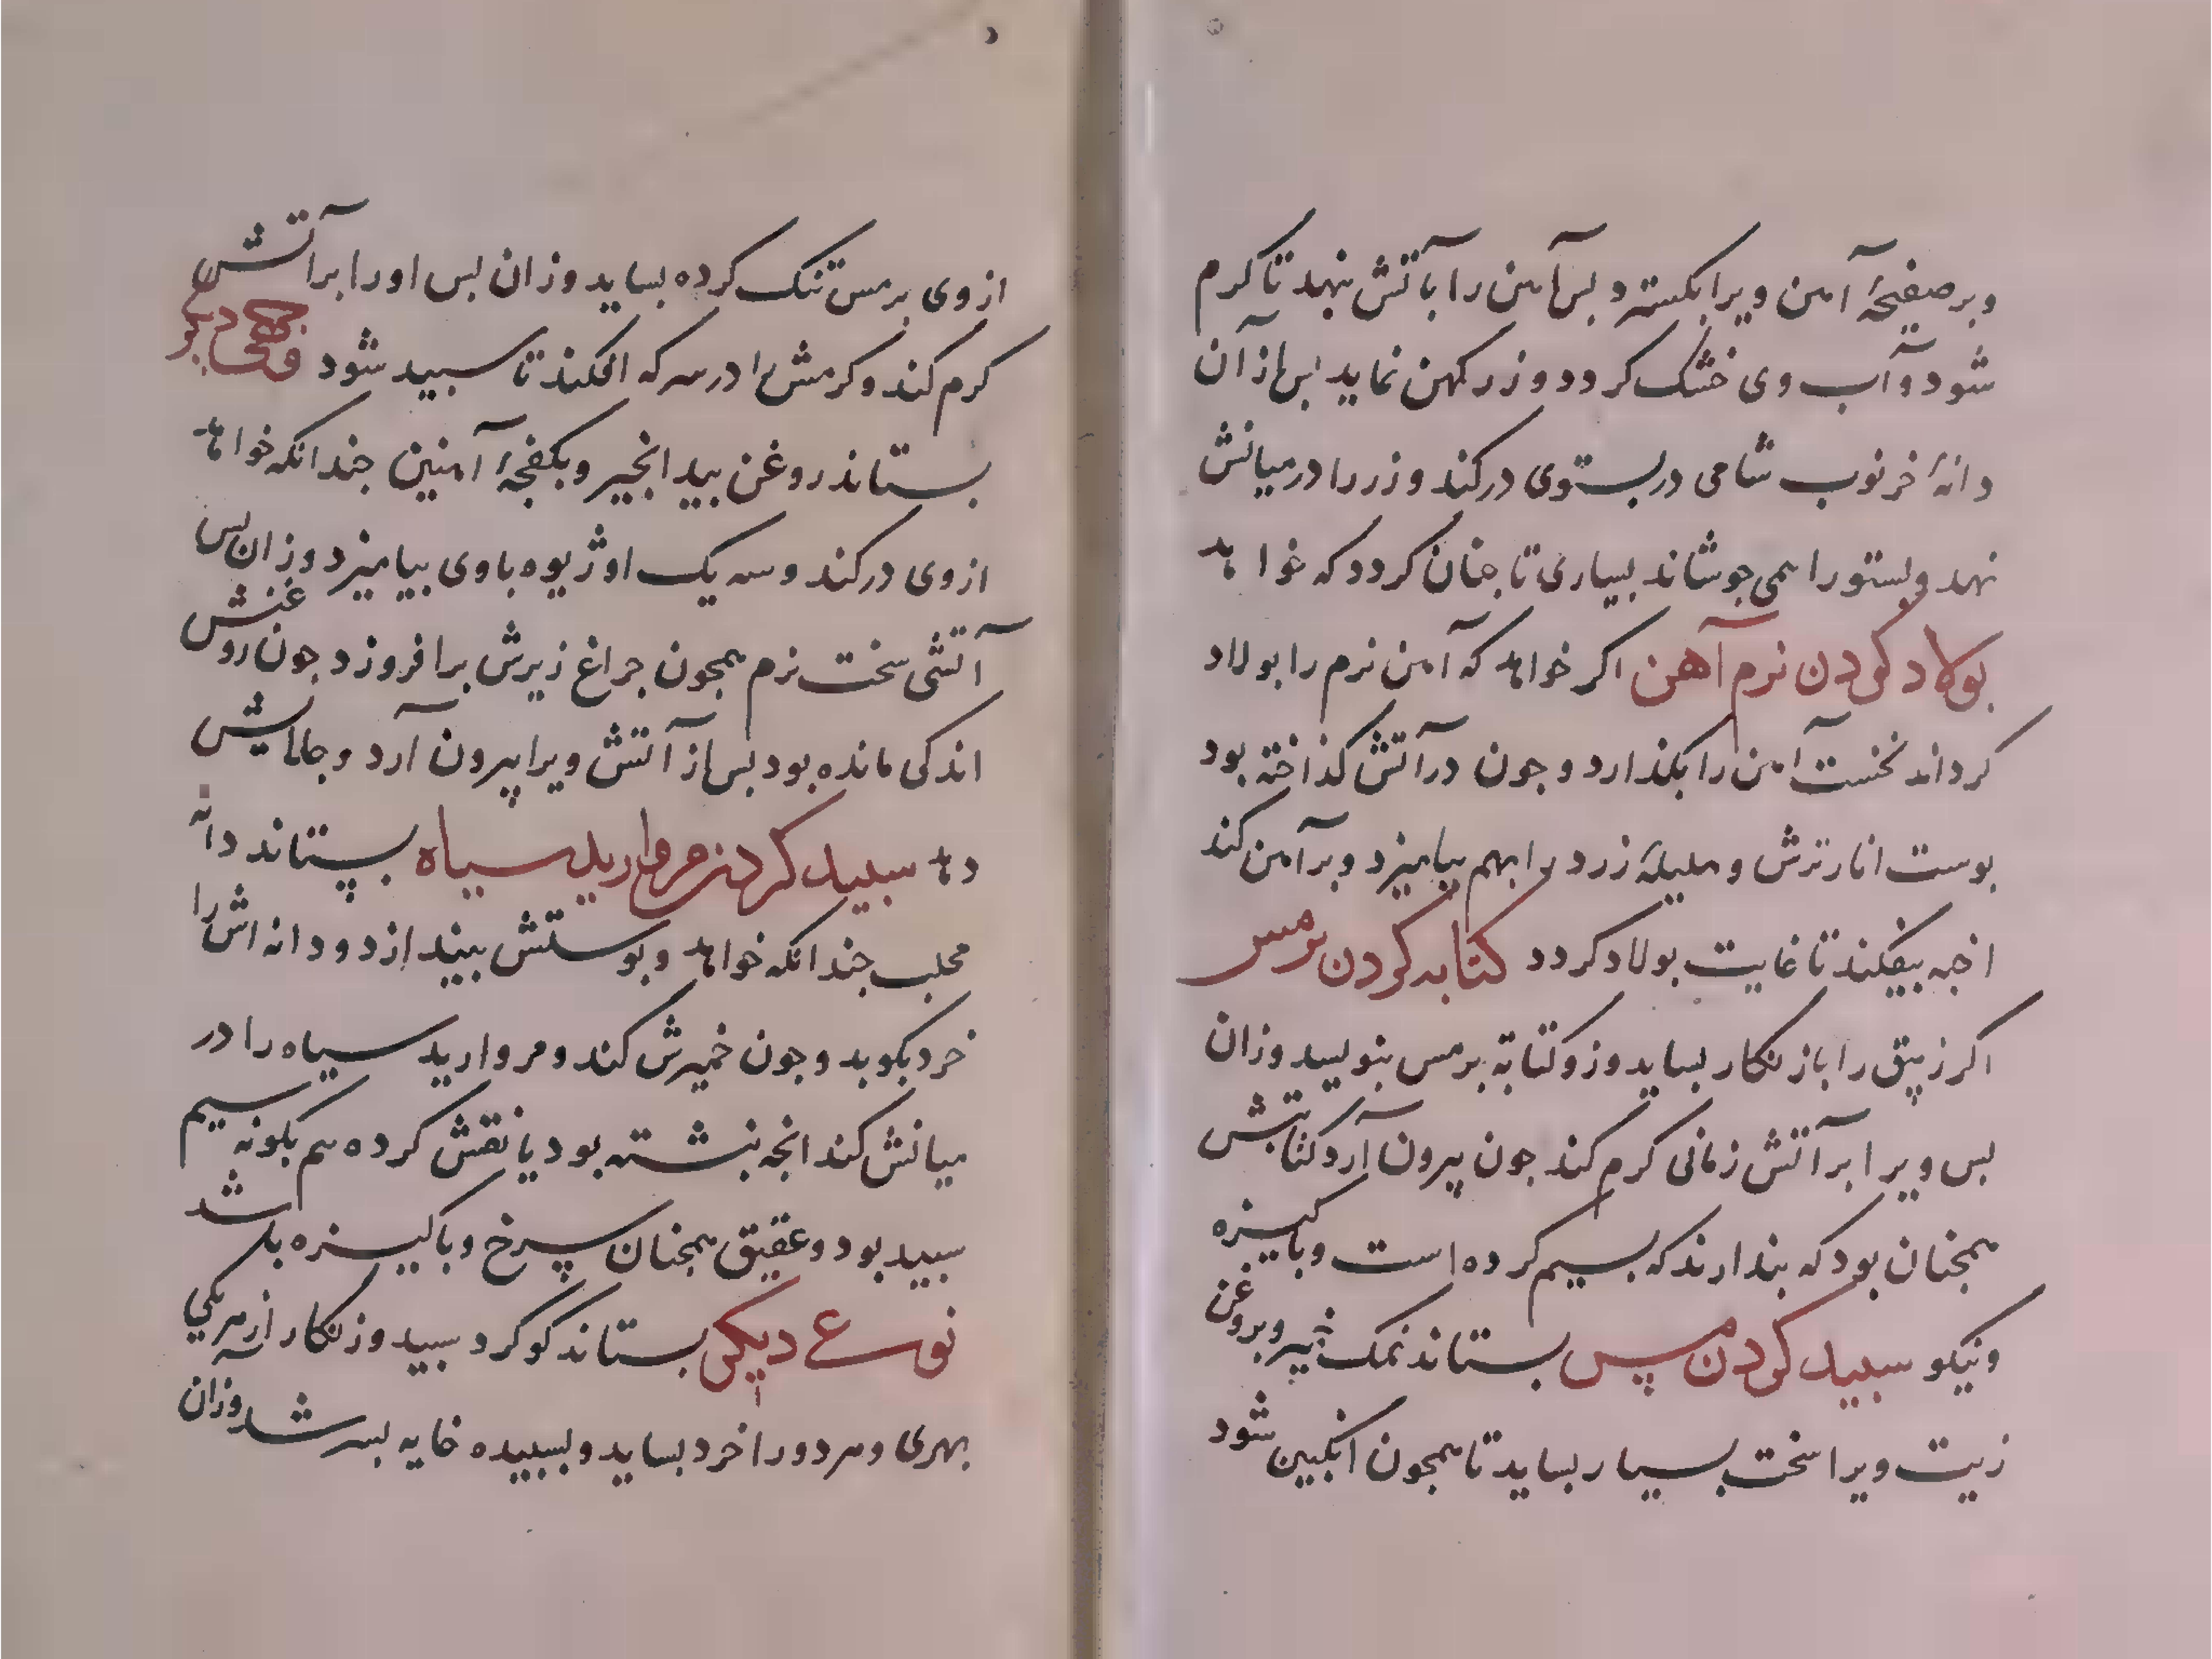 وبر صفیحهٔ آهن ویرا بکسترد بس آهن را بآتش نهد تا کرم
شود و آب وی خشک کردد و زر کهن نماید بس از آن
دانهٔ خرنوب شامی در بستوی درکند و زر را در میانش
نهد و بستو را همی جوشاند بسیاری تا جنان کردد که خواهد
بولاد کردن نرم آهن اکر خواهد که آهن نرم را بولاد
کرداند نخست آهن را بکذارد و جون در آتش کذاخته بود
بوست انار ترش و هلیلهٔ زرد را بهم بیامیزد و بر آهن کند
اجه بیفکند تا غایت بولاد کردد کتابه کردن بر مس
اکر زیبق را بازنکار بساید وز و کتابة بر مس بنویسد وزان
بس ویرا بر آتش زمانی کرم کند جون بیرون آرد کتابتش
همجنان بود که بندارند که بسیم کرده است و باکیزه
ونیکو سبید کردن مس بستاند نمک و بروغن
زیت ویرا سخت بسیار بساید تا همجون انکبین شود
از وی بر مس تنک کرده بساید وزان بس او را بر آتش
کرم کند و کرمش را در سرکه افکند تا سبید شود وجهی دیکر
بستاند روغن بید انجیر و بکفجهٔ آهنین جندانکه خواهد
از وی درکند و سه یک او ژیوه با وی بیامیزد وزان بس
آتشی سخت نرم همجون جراغ زیرش برافروزد جون روغنش
اندکی مانده بود بس از آتش ویرا بیرون آرد و جلایش
دهد سبید کردن مروارید سیاه بستاند دانه
محلب جندانکه خواهد و بوستش بیندازد و دانه اش را
خرد بکوبد و جون خمیرش کند و مروارید سیاه را در
میانش کند انجه بنشته بود یا نقش کرده هم بکونه سیم
سبید بود و عقیق همجنان سرخ و باکیزه باشد
نوع دیکر بستاند کوکرد سبید و زنکار از هر یکی
بهری و هر دو را خرد بساید و بسبیده خایه بسرشد وزان